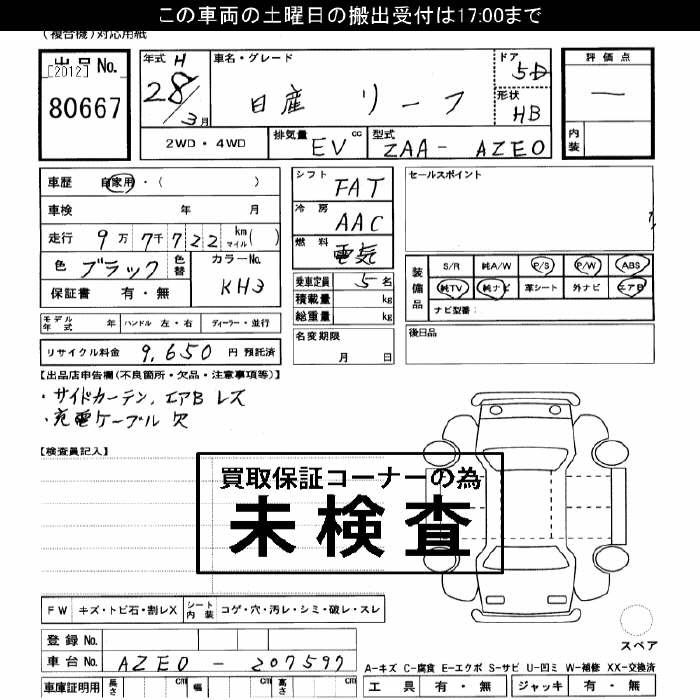 この車両の土曜日の搬出受付は17:00まで
(複合機)対応用紙
出品 No.
[2012]
80667
年式 H 28/3月
車名・グレード 日産 リーフ
ドア 5D
形状 HB
評価点 —
内装
2WD・4WD
排気量 EV cc
型式 ZAA- AZE0
車歴 自家用・( )
車検 年 月
走行 9万 7千 7 2 2 km マイル ( )
色 ブラック 色替
カラーNo. KH3
保証書 有・無
シフト FAT
冷房 AAC
燃料 電気
乗車定員 5 名
積載量 kg
総重量 kg
名変期限 月 日
セールスポイント
装備品 S/R 純A/W P/S P/W ABS
純TV 純ナビ 革シート 外ナビ エアB
ナビ型番:
後日品
モデル年式 年 ハンドル 左・右 ディーラー・並行
リサイクル料金 9,650 円 預託済
【出品店申告欄(不良箇所・欠品・注意事項等)】
・サイドカーテン,エアB レス
・充電ケーブル 欠
【検査員記入】
買取保証コーナーの為
未検査
FW キズ・トビ石・割レX シート内装 コゲ・穴・汚レ・シミ・破レ・スレ
スペア
登録 No.
車台 No. AZE0 - 207597
A-キズ C-腐食 E-エクボ S-サビ U-凹ミ W-補修 XX-交換済
車庫証明用 長さ cm 幅 cm 高さ cm
工具 有・無 ジャッキ 有・無